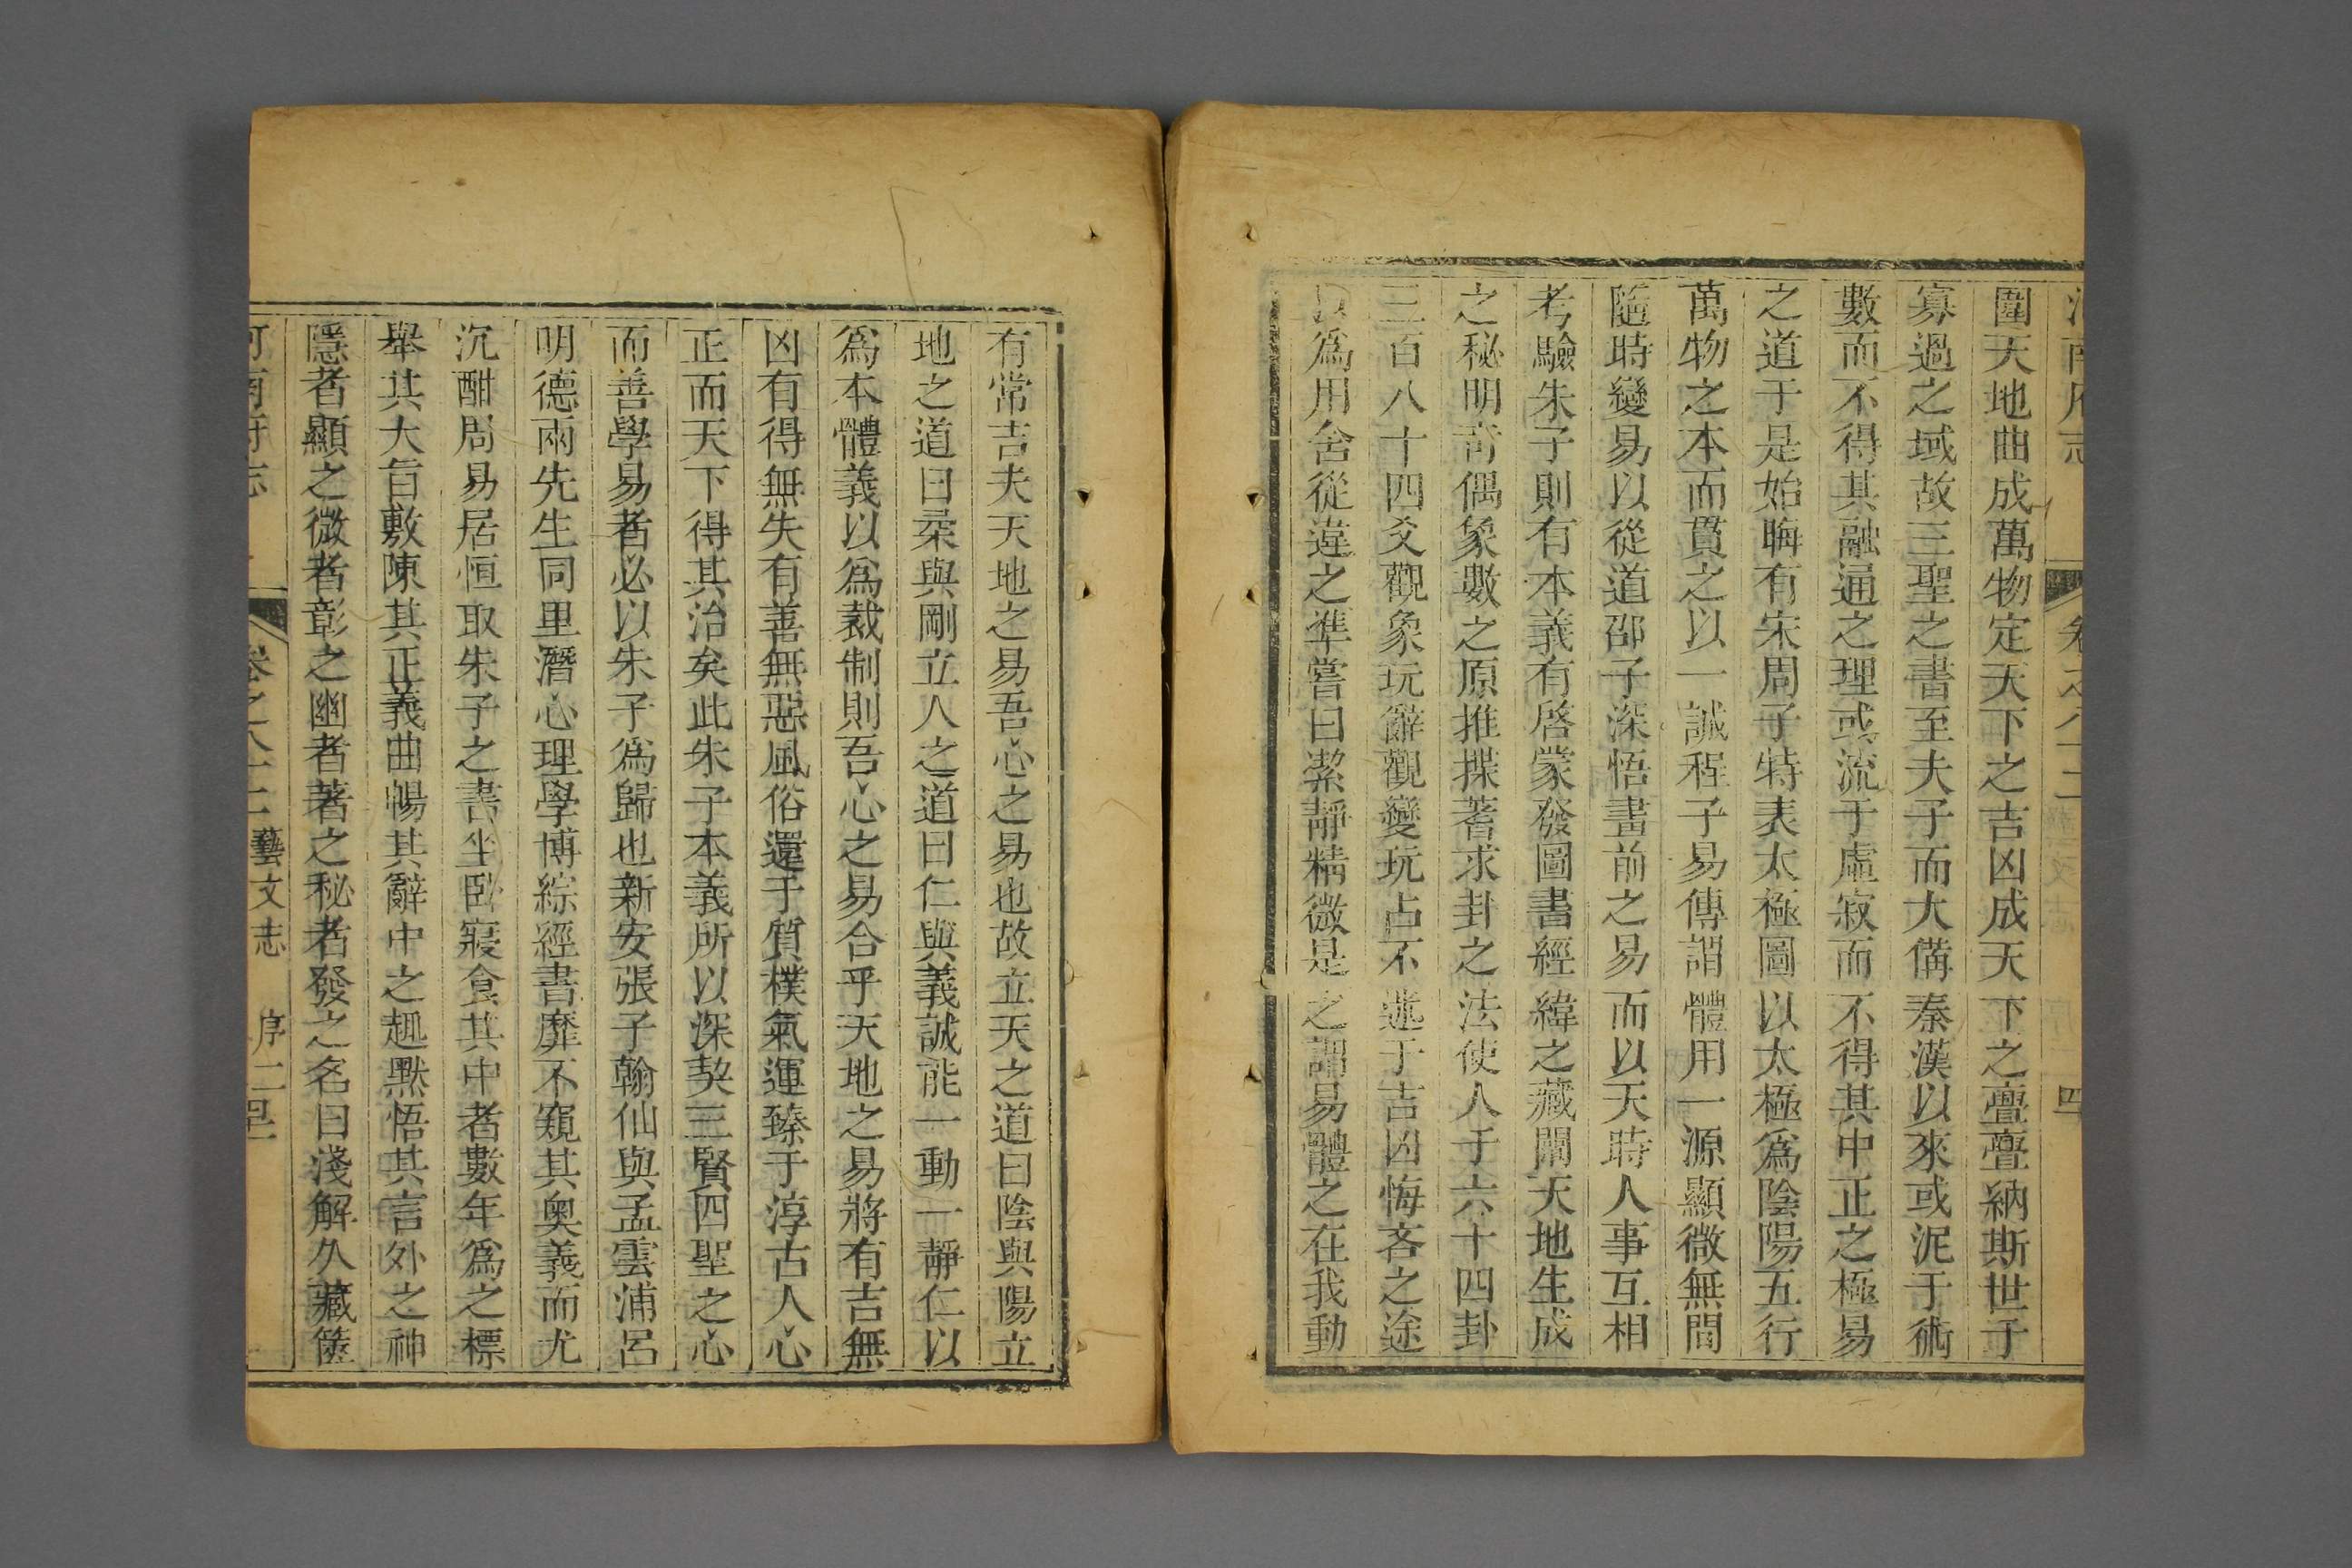 圍天地曲成萬物定天下之吉凶成天下之亹亹納斯世于
寡過之域故三聖之書至夫子而大備秦漢以來或泥于術
數而不得其融通之理或流于虛寂而不得其中正之極易
之道于是始晦有宋周子特表太極圖以太極爲陰陽五行
萬物之本而貫之以一誠程子易傳謂體用一源顯微無間
隨時變易以從道邵子深悟畫前之易而以天時人事互相
考驗朱子則有本義有啓蒙發圖書經緯之藏闡天地生成
之秘明竒偶象數之原推揲蓍求卦之法使人于六十四卦
三百八十四爻觀象玩辭觀變玩占不迷于吉凶悔吝之途
以爲用舍從違之準嘗曰潔靜精微是之謂易體之在我動
有常吉夫天地之易吾心之易也故立天之道曰陰與陽立
地之道曰柔與剛立人之道曰仁與義誠能一動一靜仁以
爲本體義以爲裁制則吾心之易合乎天地之易將有吉無
凶有得無失有善無惡風俗還于質樸氣運臻于淳古人心
正而天下得其治矣此朱子本義所以深契三賢四聖之心
而善學易者必以朱子爲歸也新安張子翰仙與孟雲浦呂
明德兩先生同里潛心理學博綜經書靡不窺其奧義而尤
沉酣周易居恒取朱子之書坐臥寢食其中者數年爲之標
舉其大旨敷陳其正義曲暢其辭中之趣默悟其言外之神
隱者顯之微者彰之幽者著之秘者發之名曰淺解久藏篋
河南府志 卷之八十二 藝文志 序二 四